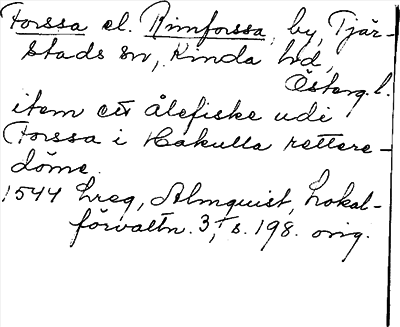 Forssa el. Rimforssa, by, Tjär-
stads sn, Kinda hd,
Österg. l.
item ett ålefiske udi
Forssa i Hakulla rettere-
döme.
1544 Lreg, Almquist, Lokal-
förvaltn. 3, I s. 198. orig.